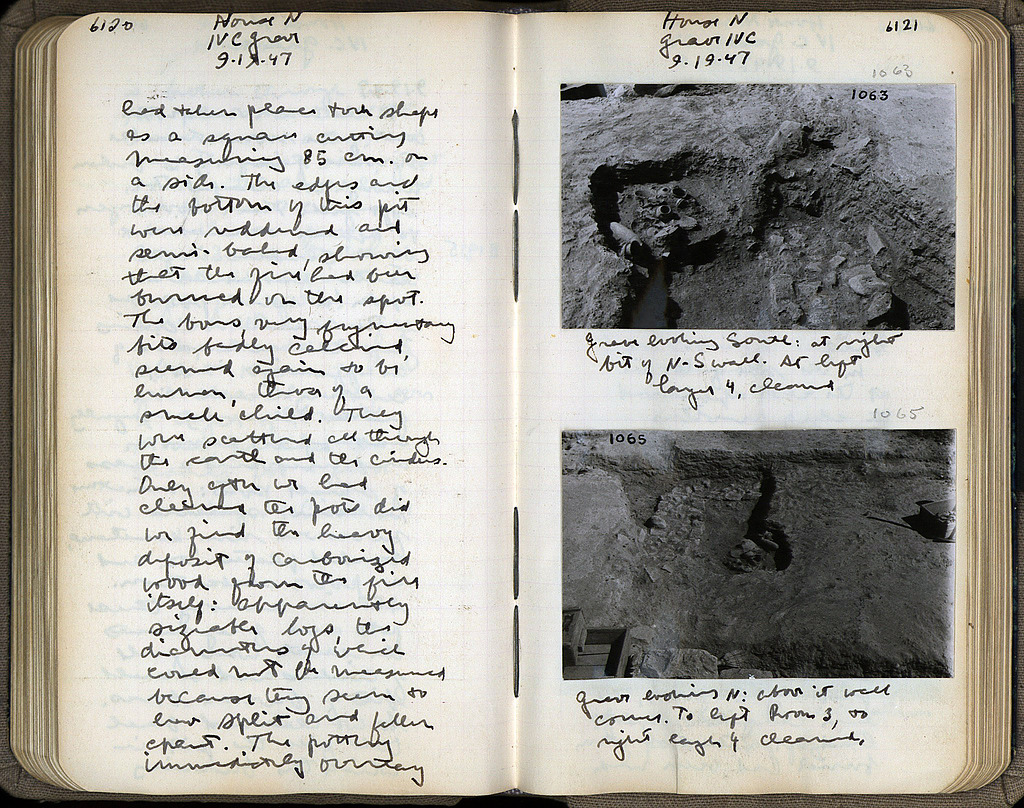 6120
House N
IVC grave
9.19.47
had taken place took shape
as a square cutting
measuring 85 cm. on
a side. The edges and
the bottom of this pit
were reddened and
semi-baked, showing
that the fire had been
burned on the spot.
The bones, very fragmentary
bits badly calcined,
seemed again to be
human, those of a
small child. They
were scattered all through
the earth and the cinders.
Only after we had
cleaned the pots did
we find the heavy
deposit of carbonized
wood from the fire
itself: apparently
sizeable logs, the
diameters of which
could not be measured
because they seem to
have split and fallen
apart. The pottery
immediately overlay
House N
grave IVC
9.19.47
6121
1063
1063
grave looking South: at right
bit of N-S wall. At left
layer 4, cleaned
1065
1065
grave looking N: above it wall
corner. To left Room 3, to
right layer 4 cleaned.